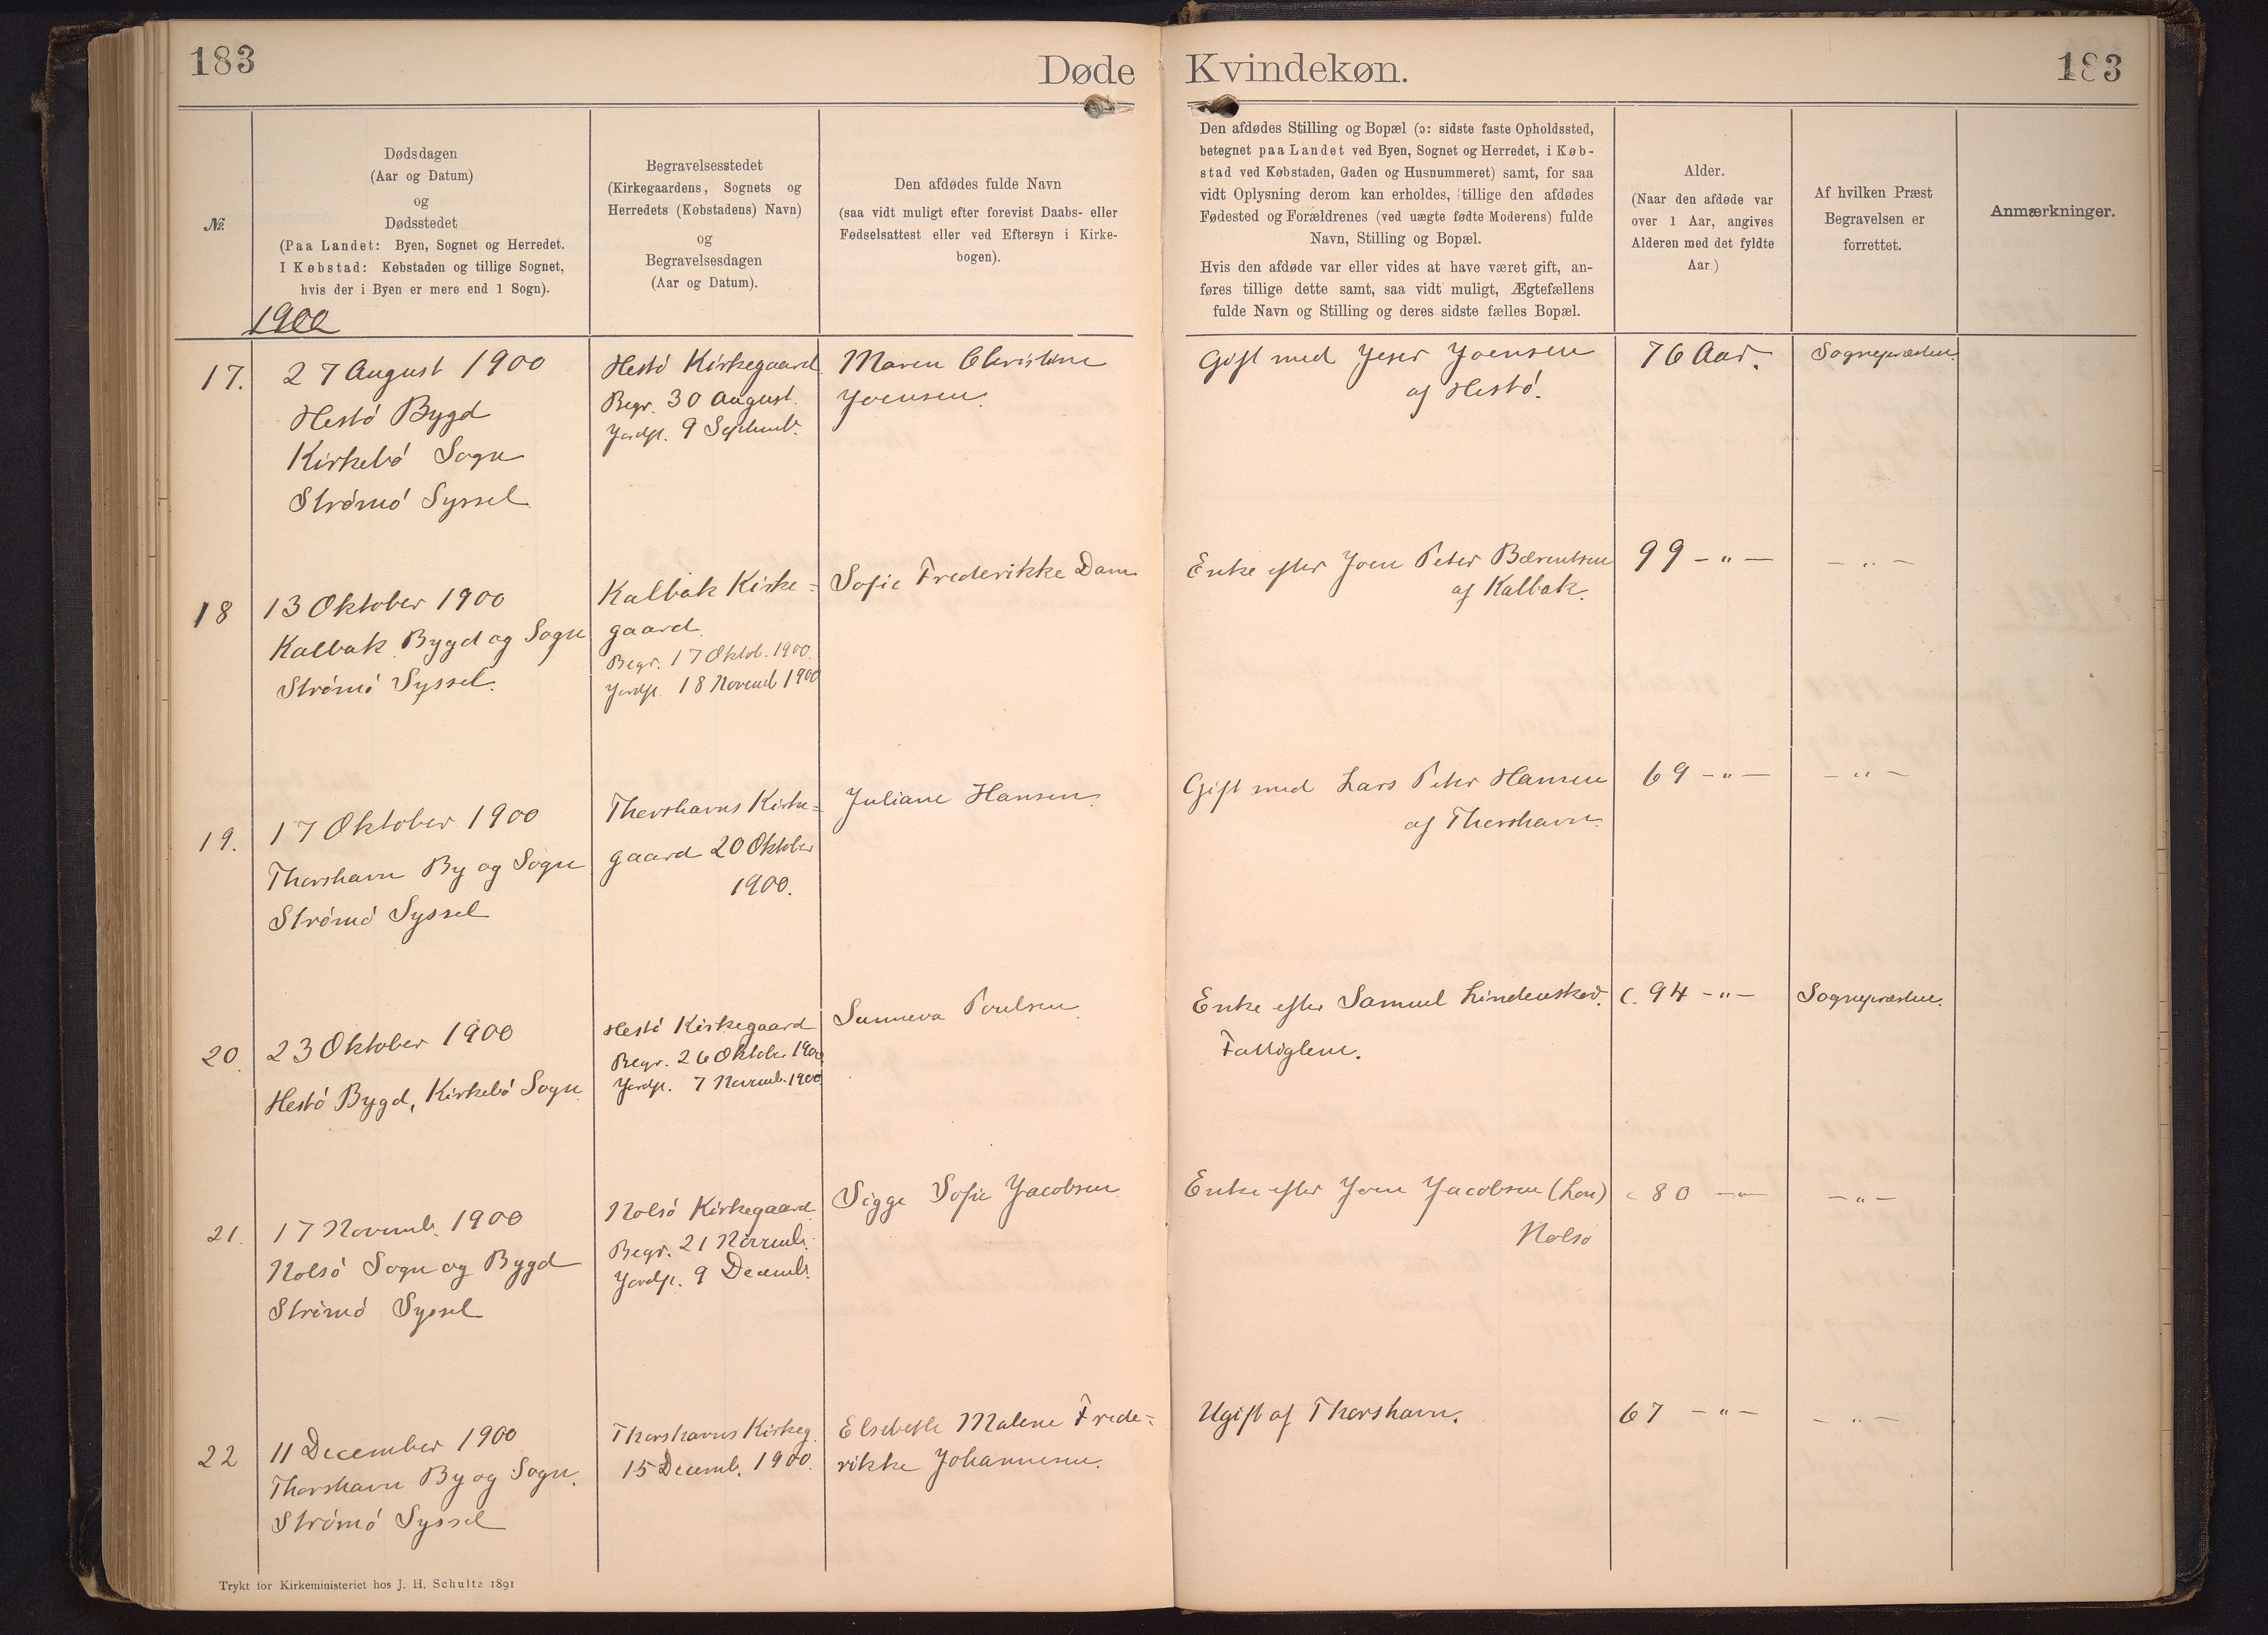 183
Døde
Kvindekøn.
183
№
Dødsdagen
(Aar og Datum)
og
Dødsstedet
(Paa Landet: Byen, Sognet og Herredet.
I Købstad: Købstaden og tillige Sognet,
hvis der i Byen er mere end 1 Sogn).
Begravelsesstedet
(Kirkegaardens, Sognets og
Herredets (Købstadens) Navn)
og
Begravelsesdagen
(Aar og Datum).
Den afdødes fulde Navn
(saa vidt muligt efter forevist Daabs- eller
Fødselsattest eller ved Eftersyn i Kirke-
bogen).
Den afdødes Stilling og Bopæl (ɔ: sidste faste Opholdssted,
betegnet paa Landet ved Byen, Sognet og Herredet, i Køb-
stad ved Købstaden, Gaden og Husnummeret) samt, for saa
vidt Oplysning derom kan erholdes, tillige den afdødes
Fødested og Forældrenes (ved uægte fødte Moderens) fulde
Navn, Stilling og Bopæl.
Hvis den afdøde var eller vides at have været gift, an-
føres tillige dette samt, saa vidt muligt, Ægtefællens
fulde Navn og Stilling og deres sidste fælles Bopæl.
Alder.
(Naar den afdøde var
over 1 Aar, angives
Alderen med det fyldte
Aar.)
Af hvilken Præst
Begravelsen er
forrettet.
Anmærkninger.
1900
17.
27 August 1900
Hestó Bygd
Kirkebó Sogn
Strómó Syssel
Hestó Kirkegaard
Begr. 30 August.
Jordp. 9 Septemb.
Maren Christine
Joensen.
Gift med Jeser Joensen
af Hestó.
76 Aar.
Sognepræsten.
18
13 Oktober 1900
Kalbak Bygd og Sogn
Strómó Syssel.
Kalbak Kirke=
gaard.
Begr. 17 Oktob. 1900.
Jordp. 18 Novemb 1900
Sofie Frederikke Dam
Enke efter Joen Peter Bærentsen
af Kalbak.
99 - " -
- " -
19.
17 Oktober 1900
Thorshavn By og Sogn
Strómó Syssel
Thorshavns Kirke=
gaard 20 Oktober
1900.
Juliane Hansen.
Gift med Lars Peter Hansen
af Thorshavn.
69 - " -
- " -
20.
23 Oktober 1900
Hestó Bygd, Kirkebó Sogn
Hestó Kirkegaard
Begr. 26 Oktober 1900
Jordp. 7 Novemb. 1900
Sunneva Poulsen.
Enke efter Samuel Lindenskov.
Fattiglem.
C. 94 - " -
Sognepræsten.
21.
17 Novemb. 1900
Nolsó Sogn og Bygd
Strómó Syssel
Nolsó Kirkegaard
Begr. 21 Novemb.
Jordp. 9 Decemb.
Sigge Sofie Jacobsen
Enke efter Joen Jacobsen (Lon)
Nolso
c 80 - " -
- " -
22
11 December 1900
Thorshavn By og Sogn.
Strómó Syssel
Thorshavns Kirkeg.
15 Decemb. 1900.
Elsebeth Malene Frede=
rikke Johannesen.
Ugift af Thorshavn.
67 - " -
- " -
Trykt for Kirkeministeriet hos J. H. Schultz 1891